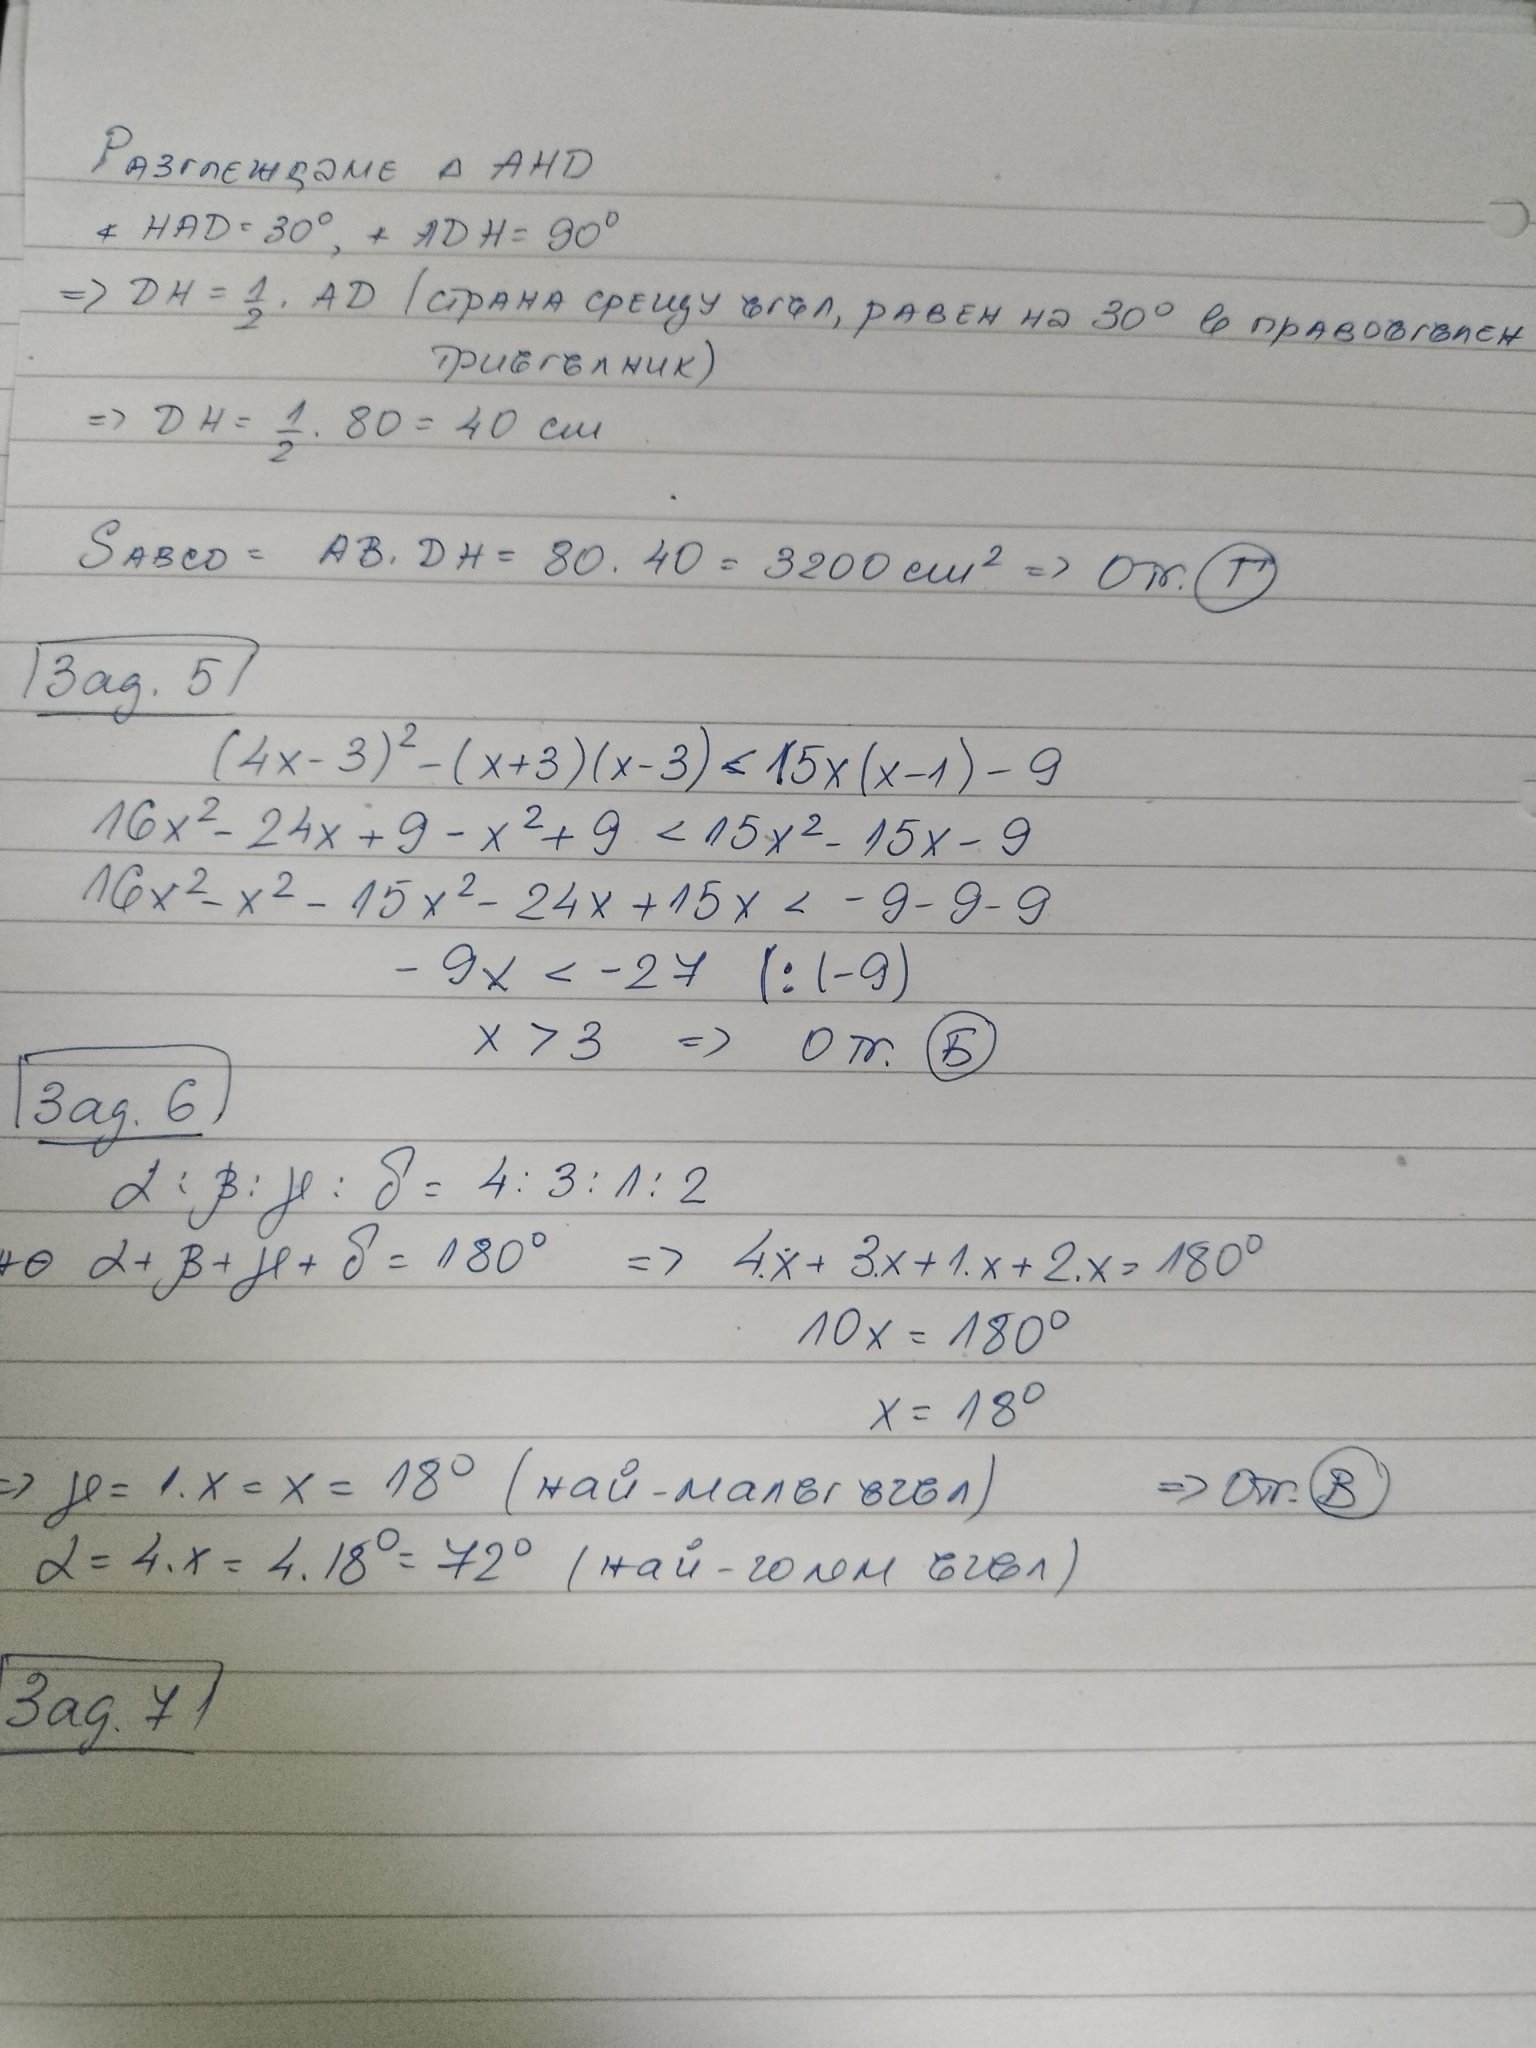 Разглеждаме △ AHD
∢ HAD = 30°, ∢ ADH = 90°
=> DH = 1/2 . AD (страна срещу ъгъл, равен на 30° в правоъгълен
триъгълник)
=> DH = 1/2 . 80 = 40 cm
SABCD = AB . DH = 80 . 40 = 3200 cm² => Отг. Г
Зад. 5
(4x - 3)² - (x+3)(x-3) < 15x(x-1) - 9
16x² - 24x + 9 - x² + 9 < 15x² - 15x - 9
16x² - x² - 15x² - 24x + 15x < -9 - 9 - 9
-9x < -27 (: (-9)
x > 3 => Отг. Б
Зад. 6
α : β : γ : δ = 4 : 3 : 1 : 2
но α + β + γ + δ = 180° => 4.x + 3.x + 1.x + 2.x = 180°
10x = 180°
x = 18°
=> γ = 1.x = x = 18° (най-малък ъгъл) => Отг. В
α = 4.x = 4.18° = 72° (най-голям ъгъл)
Зад. 7